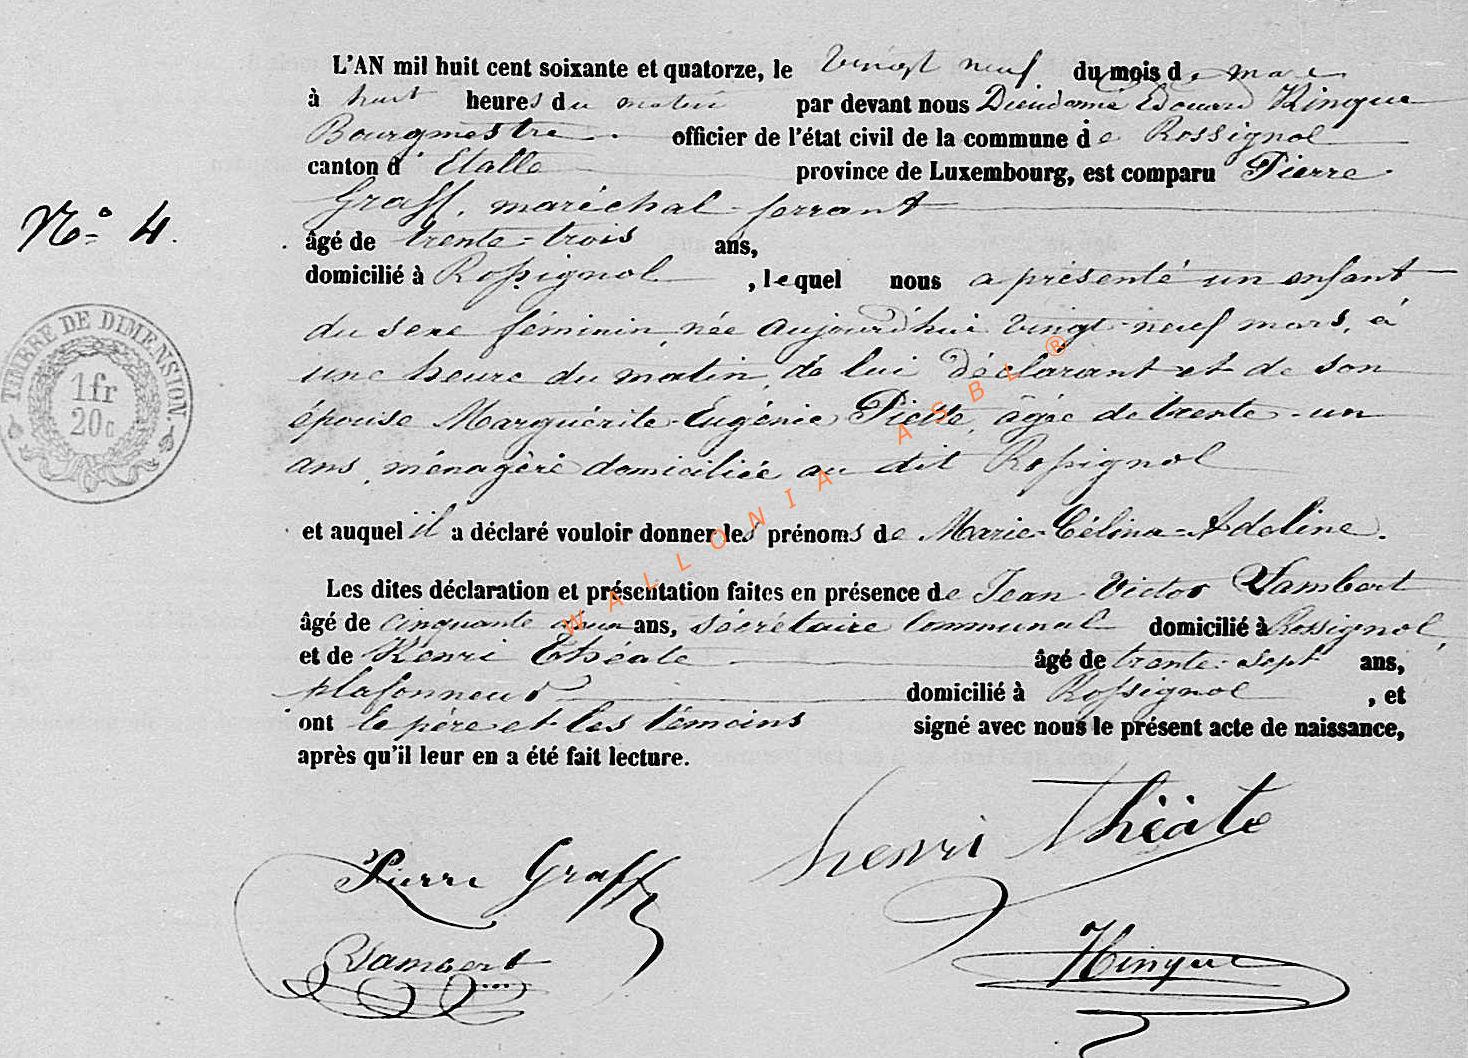 L'AN mil huit cent soixante et quatorze, le vingt neuf du mois de mars
à huit heures du matin par devant nous Dieudonné Edouard Hinque
Bourgmestre officier de l'état civil de la commune de Rossignol
canton d'Etalle province de Luxembourg, est comparu Pierre
Graff, maréchal-ferrant
N° 4.
âgé de trente-trois ans,
domicilié à Rossignol, lequel nous a présenté un enfant
du sexe féminin, née aujourd'hui vingt-neuf mars, à
une heure du matin, de lui déclarant et de son
épouse Marguérite-Eugénie Piette, âgée de trente-un
ans, ménagère domiciliée au dit Rossignol
TIMBRE DE DIMENSION
1fr
20c
et auquel il a déclaré vouloir donner les prénoms de Marie-Célina-Adeline.
Les dites déclaration et présentation faites en présence de Jean-Victor Lambert
âgé de cinquante ans, sécrétaire communal domicilié à Rossignol,
et de Henri Théate âgé de trente-sept ans,
plafonneur domicilié à Rossignol, et
ont le père et les témoins signé avec nous le présent acte de naissance,
après qu'il leur en a été fait lecture.
WALLONIA ASBL ®
henri Théate
Pierre Graff
Lambert
Hinque